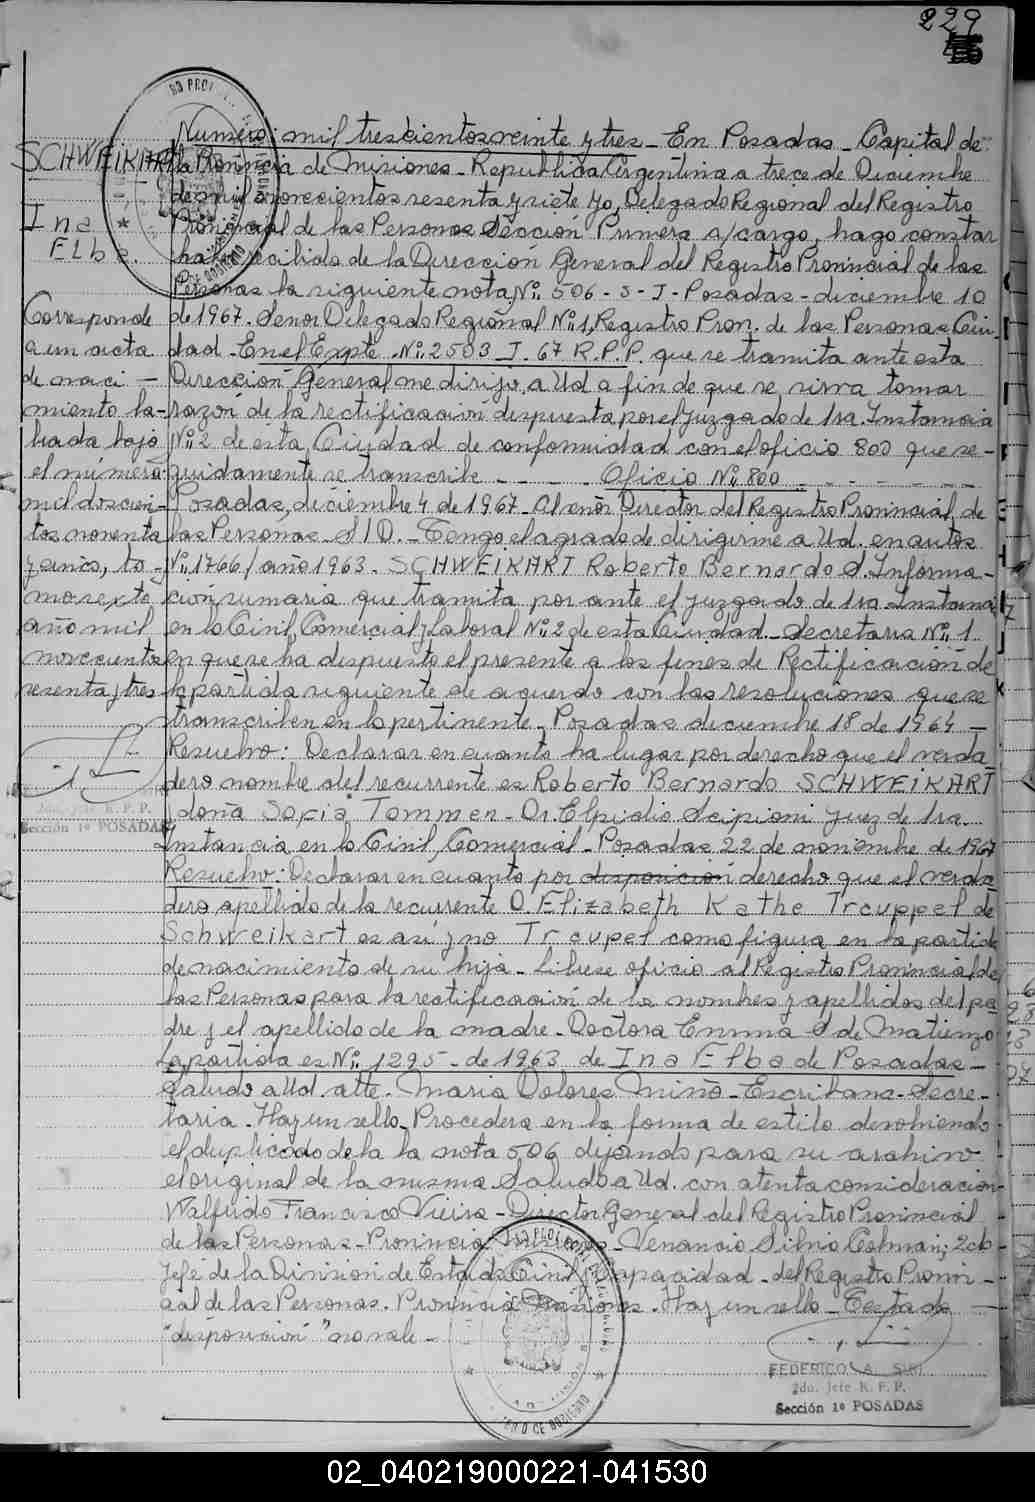 229
SCHWEIKART
Ina
Elba.
Corresponde
a un acta
de naci -
miento la-
brada bajo
el número:
mil doscien-
tos noventa
y cinco, to-
mo sexto
año mil
novecientos
sesenta y tres
2do. Jefe R. P. P.
Sección 1º POSADAS
Número: mil trescientos veinte y tres - En Posadas - Capital de
la Provincia de Misiones - Republica Argentina a trece de Diciembre
de mil novecientos sesenta y siete yo, Delegado Regional del Registro
Provincial de las Personas Sección Primera a/cargo, hago constar
haber recibido de la Dirección General del Registro Provincial de las
Personas la siguiente nota, Nº: 506 - S - J - Posadas - diciembre 10
de 1967. Señor Delegado Regional Nº: 1, Registro Prov. de las Personas Ciu
dad - En el Expte. Nº: 2503 J. 67 R. P. P. que se tramita ante esta
Dirección General me dirijo a Ud a fin de que se sirva tomar
razón de la rectificación dispuesta por el Juzgado de 1ra. Instancia
Nº: 2 de esta Ciudad de conformidad con el oficio 800 que se -
guidamente se transcribe - - - - Oficio Nº: 800 - - - - -
Posadas, diciembre 4 de 1967 - Al señor Director del Registro Provincial de
las Personas - S/D. - Tengo el agrado de dirigirme a Ud. en autos
Nº: 1766/año 1963. SCHWEIKART Roberto Bernardo S. Informa -
ción sumaria que tramita por ante el juzgado de 1ra Instancia
en lo Civil, Comercial y Laboral Nº: 2 de esta Ciudad - Secretaria Nº: 1
en que se ha dispuesto el presente a los fines de Rectificación de
la partida siguiente de acuerdo con las resoluciones que se
transcriben en lo pertinente, Posadas diciembre 18 de 1964 -
Resuelvo: Declarar en cuanto ha lugar por derecho que el verda
dero nombre del recurrente es Roberto Bernardo SCHWEIKART
y doña Sofia Tommen - Dr. Elpidio Scipioni Juez de 1ra.
Instancia en lo Civil, Comercial - Posadas 22 de noviembre de 1967
Resuelvo: Declarar en cuanto por disposición derecho que el verda
dero apellido de la recurrente D. Elizabeth Kathe Trouppel de
Schweikart es así y no Troupel como figura en la partida
de nacimiento de su hija - Librese oficio al Registro Provincial de
las Personas para la rectificación de los nombres y apellidos del pa
dre y el apellido de la madre - Doctora Emma S de Matienzo
La partida es Nº: 1295 - de 1963 de Ina Elba de Posadas -
Saludo a Ud. atte. Maria Dolores Miño - Escribana - Secre-
taria. Hay un sello, Procedera en la forma de estilo devolviendo
el duplicado de la la nota 506 dejando para su archivo
el original de la misma. Saludo a Ud. con atenta consideración
Walfrido Francisco Vieira - Director General del Registro Provincial
de las Personas - Provincia Misiones - Venancio Silvio Colman; 2do
Jefe de la Division de Estado Civil y Capacidad - del Registro Provin -
cial de las Personas. Provincia Misiones. Hay un sello - Testado
"disposición" no vale -
FEDERICO A. SIRI
2do. Jefe R. P. P.
Sección 1º POSADAS
02_040219000221-041530